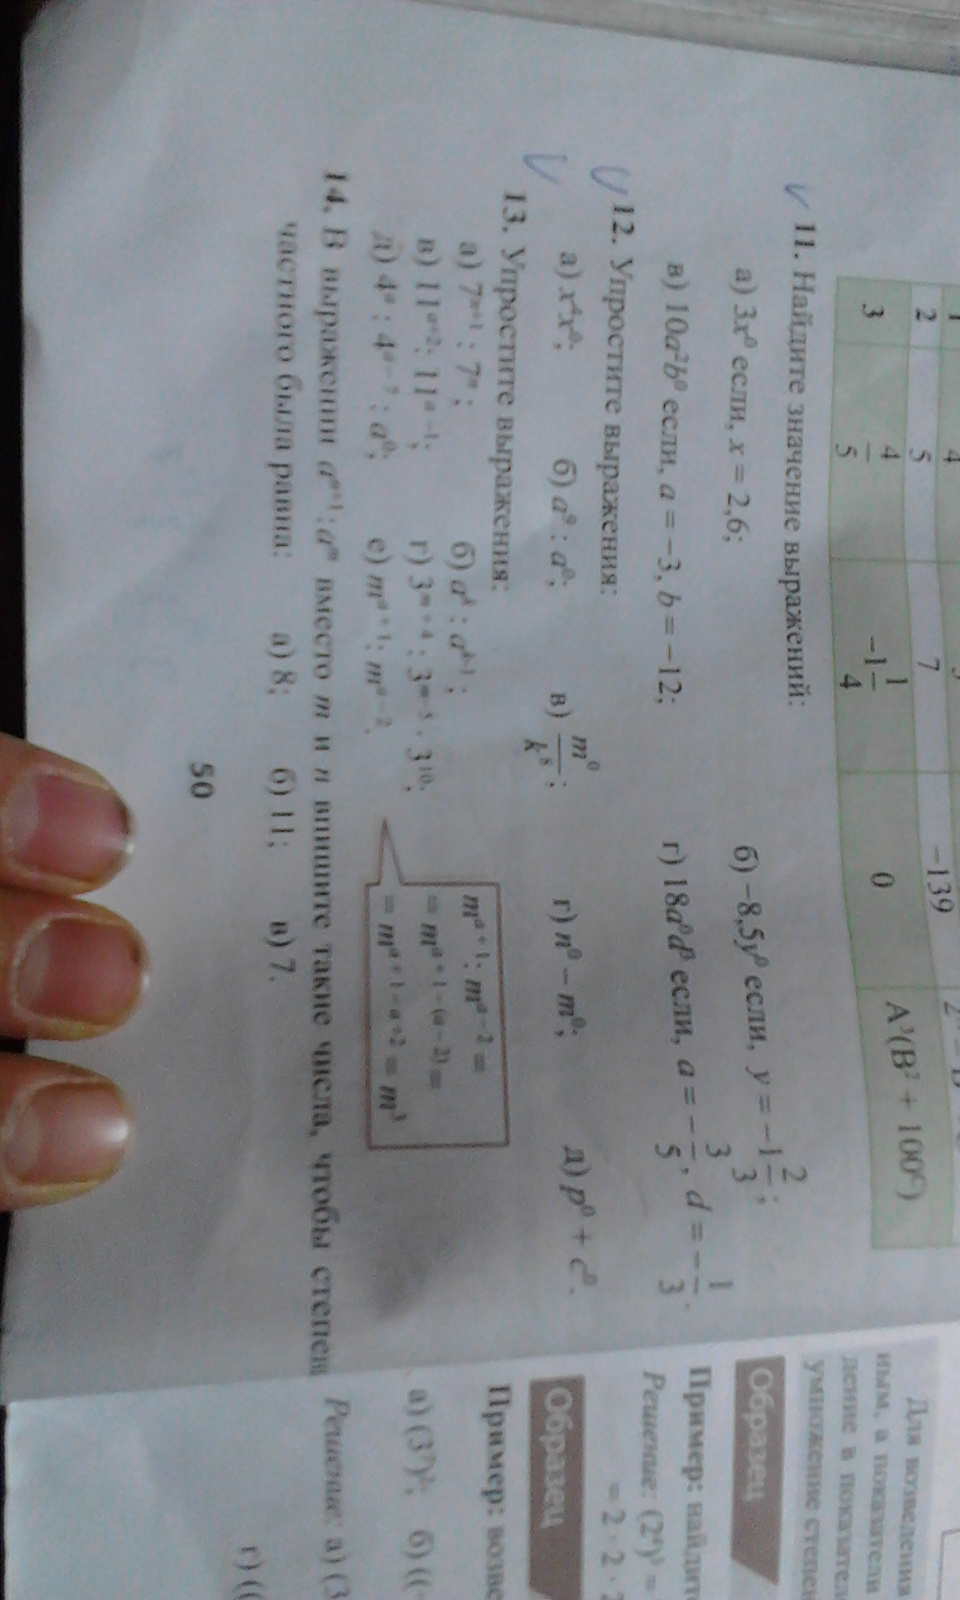 2 5 7 −139
3 4/5 −1 1/4 0 A³(B² + 100ᶜ)
11. Найдите значение выражений:
а) 3x⁰ если, x = 2,6; б) −8,5y⁰ если, y = −1 2/3;
в) 10a²b⁰ если, a = −3, b = −12; г) 18a⁰d³ если, a = −3/5, d = −1/3.
12. Упростите выражения:
а) x⁴x⁰; б) a⁹ : a⁰; в) m⁰/k⁸; г) n⁰ − m⁰; д) p⁰ + c⁰.
13. Упростите выражения:
а) 7ⁿ⁺¹ : 7ⁿ; б) aᵏ : aᵏ⁻¹;
в) 11ᵃ⁺²: 11ᵃ⁻¹; г) 3ᵐ⁺⁴ : 3ᵐ⁻⁵ · 3¹⁰;
д) 4ᵃ : 4ᵃ⁻² : a⁰; е) mᵃ⁺¹: mᵃ⁻².
mᵃ⁺¹: mᵃ⁻² =
= mᵃ⁺¹⁻⁽ᵃ⁻²⁾ =
= mᵃ⁺¹⁻ᵃ⁺² = m³
14. В выражении aⁿ⁺¹: aᵐ вместо m и n впишите такие числа, чтобы степень
частного была равна: а) 8; б) 11; в) 7.
50
Для возведения
а показатели
умножение
Образец
Пример: найдите
Решение:
= 2 · 2 ·
Образец
Пример:
Решение: а) (3
г) ((